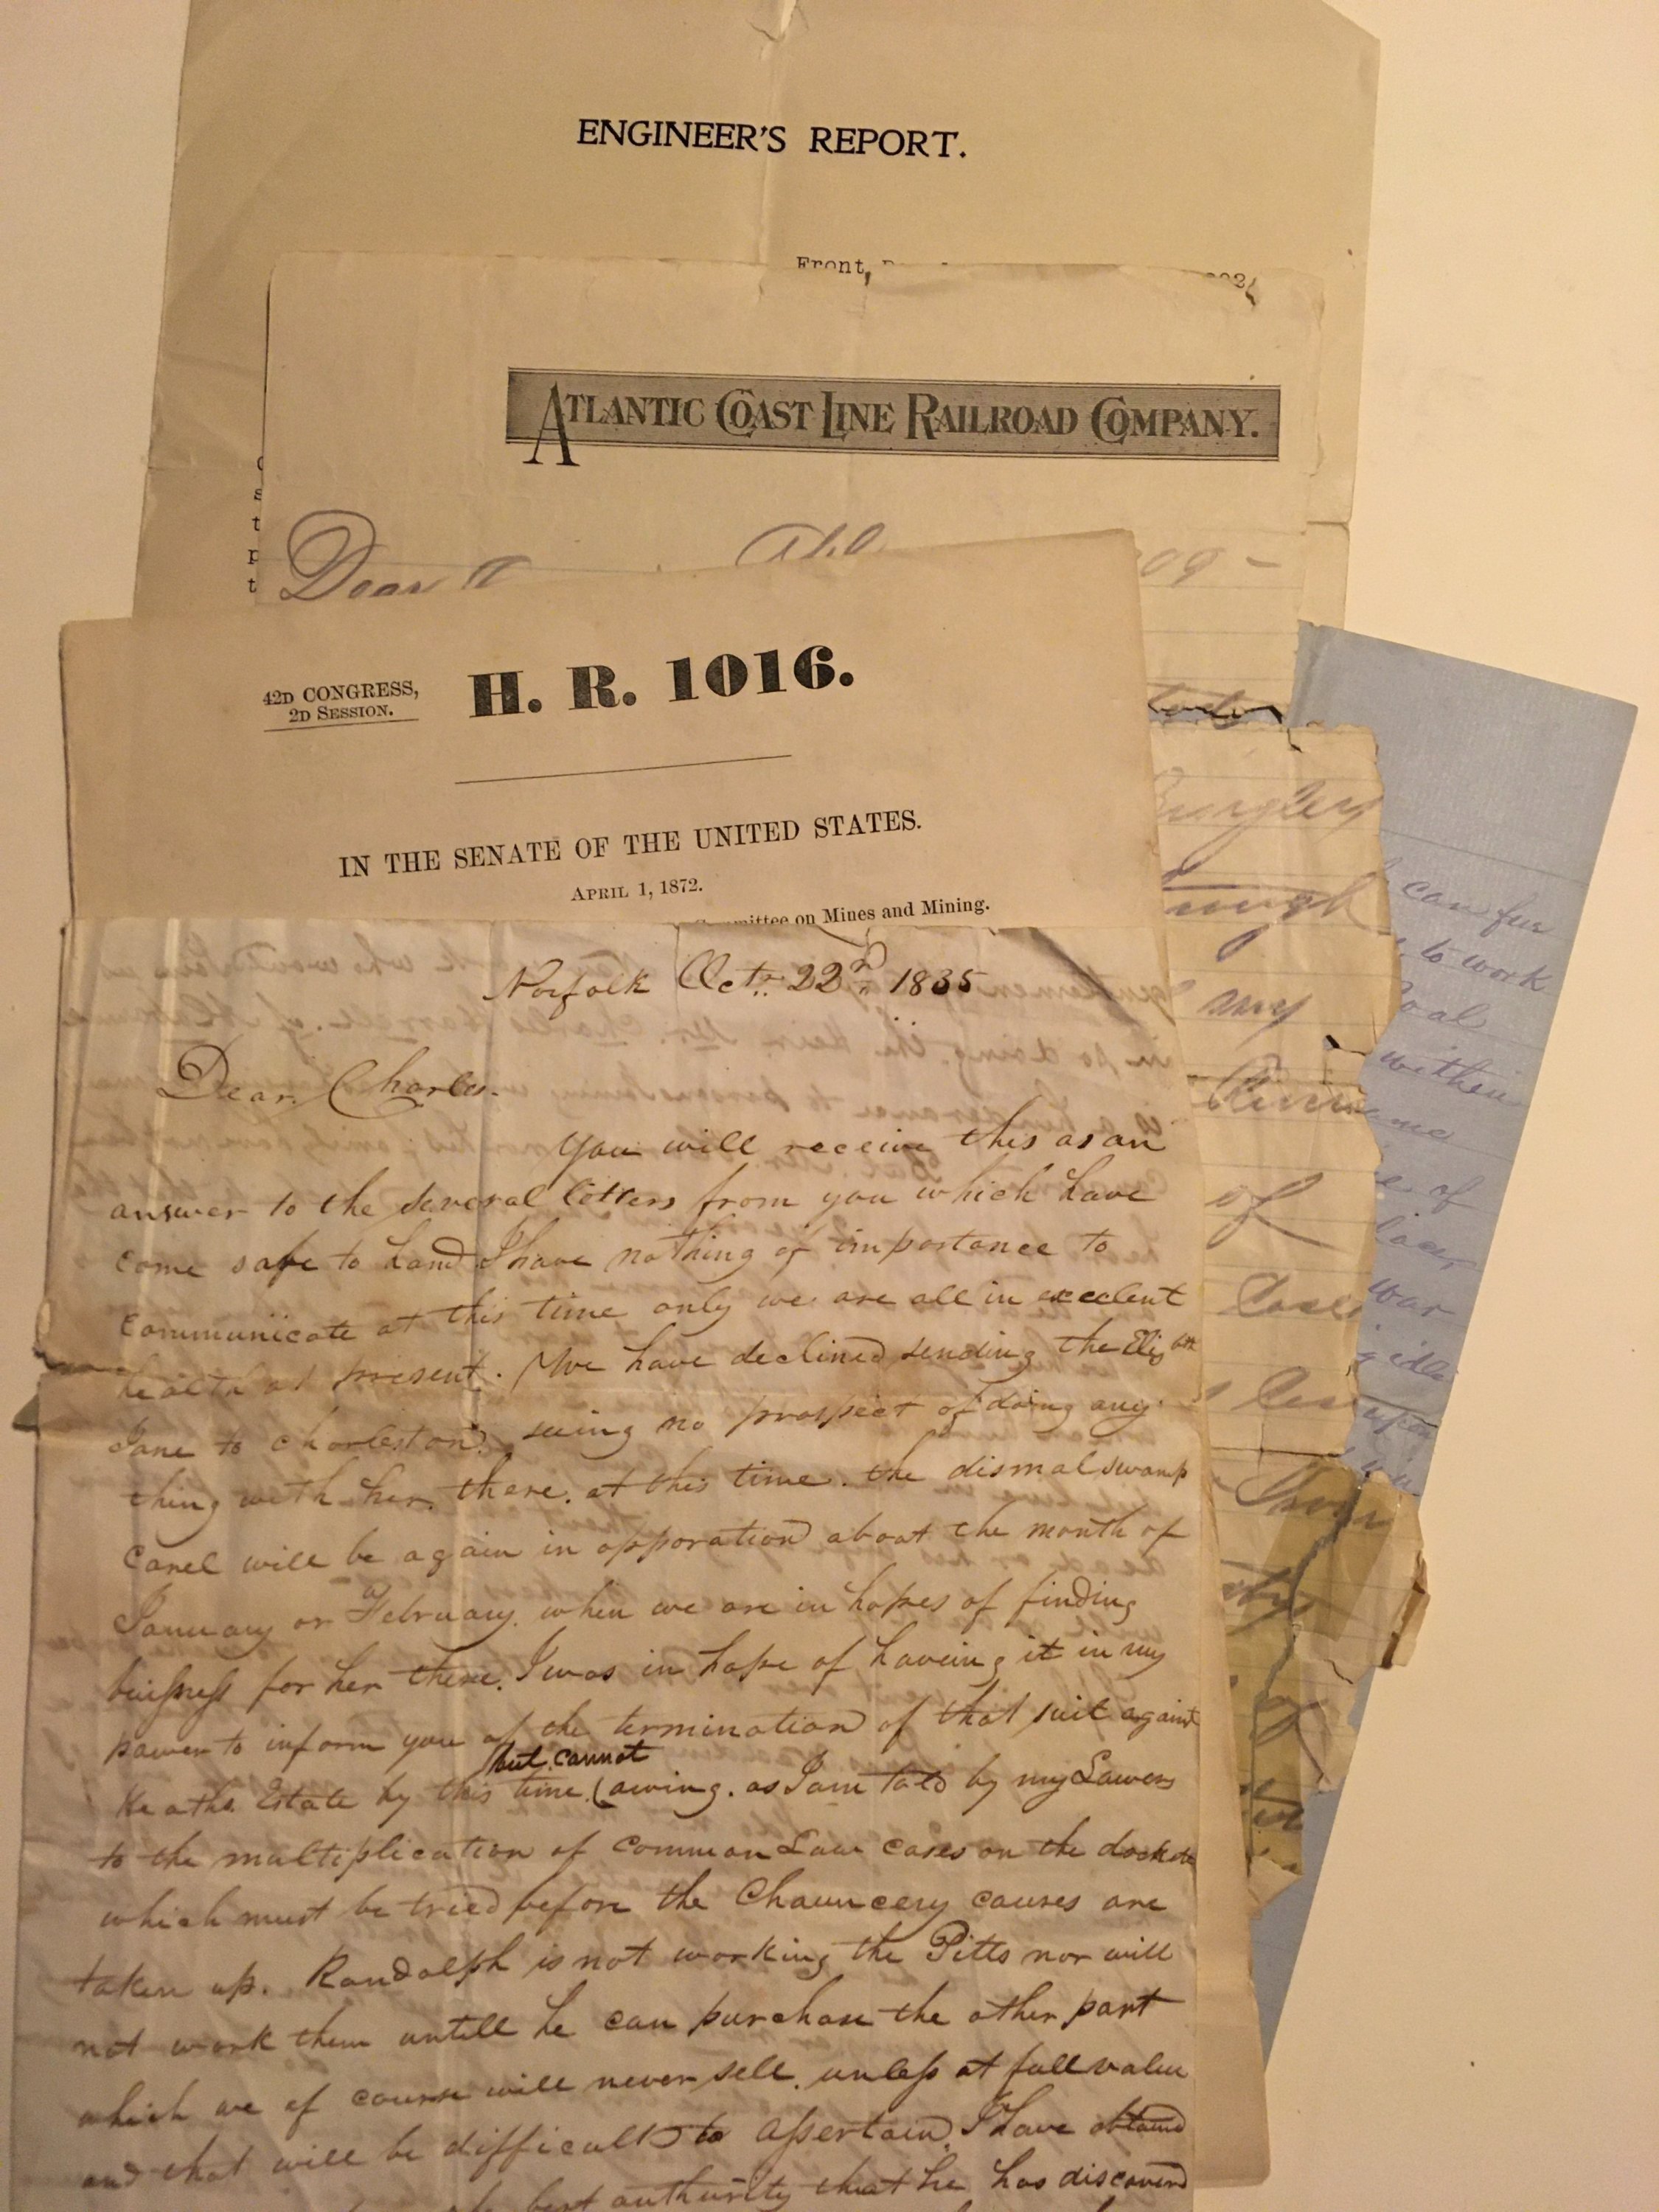 ENGINEER'S REPORT.
Front,
ATLANTIC COAST LINE RAILROAD COMPANY.
Dear
09-
42D CONGRESS,
2D SESSION.
H. R. 1016.
IN THE SENATE OF THE UNITED STATES.
APRIL 1, 1872.
on Mines and Mining.
Norfolk Octr. 22nd 1835
Dear Charles.
You will receive this as an
answer to the several letters from you which have
come safe to hand I have nothing of importance to
communicate at this time only we are all in excelent
health at present. We have declined sending the Elizbth
Jane to Charleston, seeing no prospect of doing any
thing with her there at this time. the dismal swamp
Canel will be again in opporation about the month of
January or February when we are in hopes of finding
buisness for her there. I was in hope of haveing it in my
power to inform you of the termination of that suit against
Estate by this time but cannot (owing. as I am told by my Lawers
to the multiplication of Common Law cases on the
which must be tried before the Chauncery causes are
taken up. Randolph is not working the Pitts nor will
not work them untill he can purchase the other part
which we of course will never sell. unless at full value
and that will be difficult to assertain. I have
best authority that he has discovered
my
of
can fur
to work
within
of
war
idle
upon